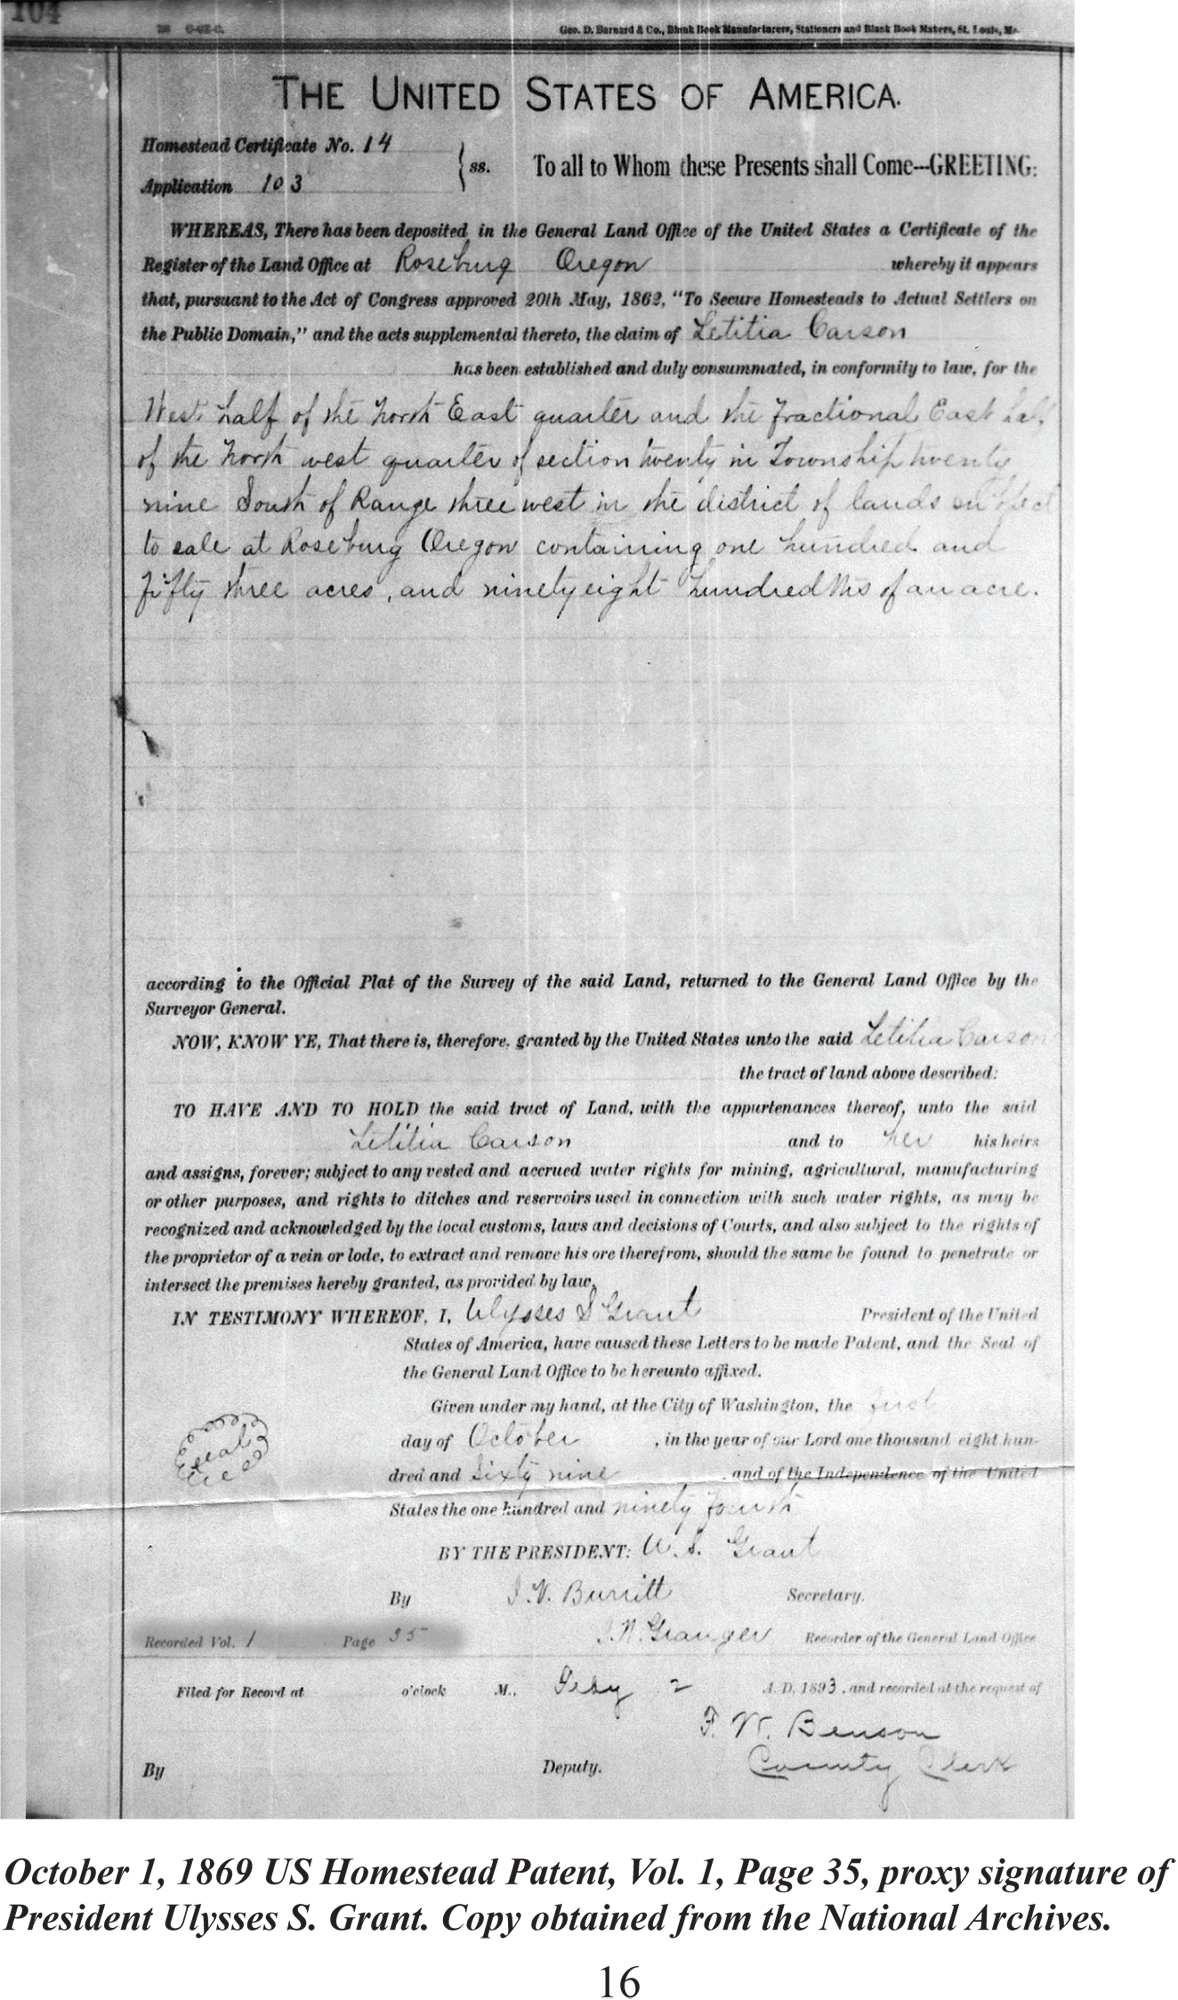 104
Geo. D. Barnard & Co., Blank Book Manufacturers, Stationers and Blank Book Makers, St. Louis, Mo.
THE UNITED STATES OF AMERICA.
Homestead Certificate No. 14
Application 103
ss.
To all to Whom these Presents shall Come---GREETING:
WHEREAS, There has been deposited in the General Land Office of the United States a Certificate of the
Register of the Land Office at Roseburg Oregon whereby it appears
that, pursuant to the Act of Congress approved 20th May, 1862, "To Secure Homesteads to Actual Settlers on
the Public Domain," and the acts supplemental thereto, the claim of Letitia Carson
has been established and duly consummated, in conformity to law, for the
West half of the North East quarter and the fractional East half
of the North west quarter of section twenty in Township twenty
nine South of Range three west in the district of lands subject
to sale at Roseburg Oregon containing one hundred and
fifty three acres, and ninety eight hundredths of an acre.
according to the Official Plat of the Survey of the said Land, returned to the General Land Office by the
Surveyor General.
NOW, KNOW YE, That there is, therefore, granted by the United States unto the said Letitia Carson
the tract of land above described:
TO HAVE AND TO HOLD the said tract of Land, with the appurtenances thereof, unto the said
Letitia Carson and to her his heirs
and assigns, forever; subject to any vested and accrued water rights for mining, agricultural, manufacturing
or other purposes, and rights to ditches and reservoirs used in connection with such water rights, as may be
recognized and acknowledged by the local customs, laws and decisions of Courts, and also subject to the rights of
the proprietor of a vein or lode, to extract and remove his ore therefrom, should the same be found to penetrate or
intersect the premises hereby granted, as provided by law.
IN TESTIMONY WHEREOF, I, Ulysses S Grant President of the United
States of America, have caused these Letters to be made Patent, and the Seal of
the General Land Office to be hereunto affixed.
Given under my hand, at the City of Washington, the first
day of October, in the year of our Lord one thousand eight hun-
Seal
dred and Sixty nine, and of the Independence of the United
States the one hundred and ninety fourth
BY THE PRESIDENT: U. S. Grant
By J. V. Burritt Secretary.
Recorded Vol. 1 Page 35 J. N. Granger Recorder of the General Land Office
Filed for Record at o'clock M., Feby 2 A. D. 1893, and recorded at the request of
F. W. Benson
County Clerk
By Deputy.
October 1, 1869 US Homestead Patent, Vol. 1, Page 35, proxy signature of
President Ulysses S. Grant. Copy obtained from the National Archives.
16